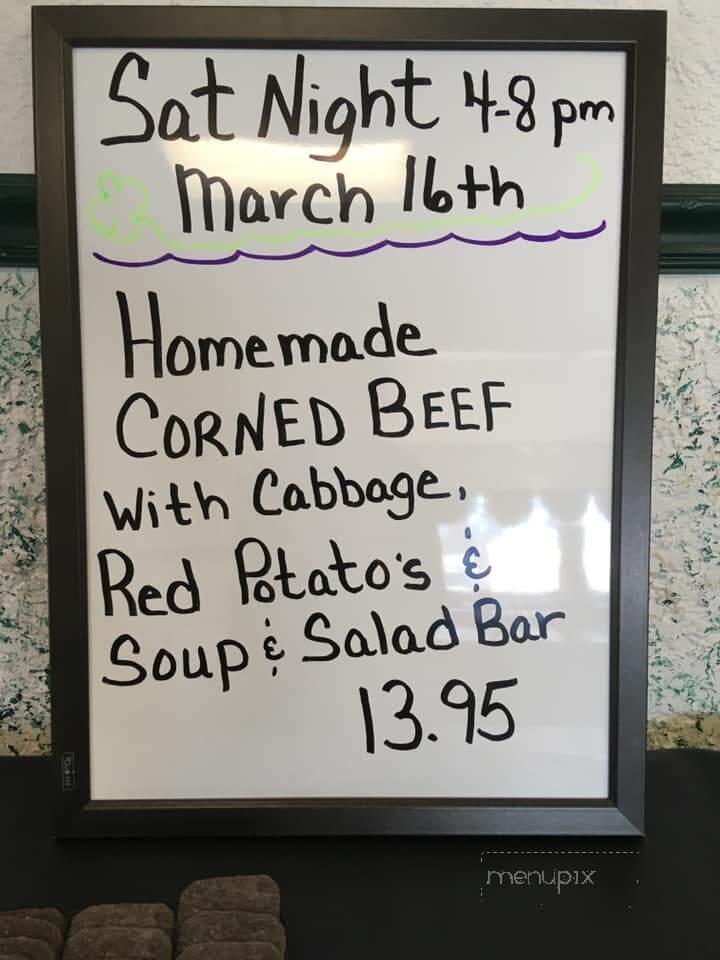 Sat Night 4-8 pm
March 16th
Homemade
CORNED BEEF
With Cabbage,
Red Potato's &
Soup & Salad Bar
13.95
menupix